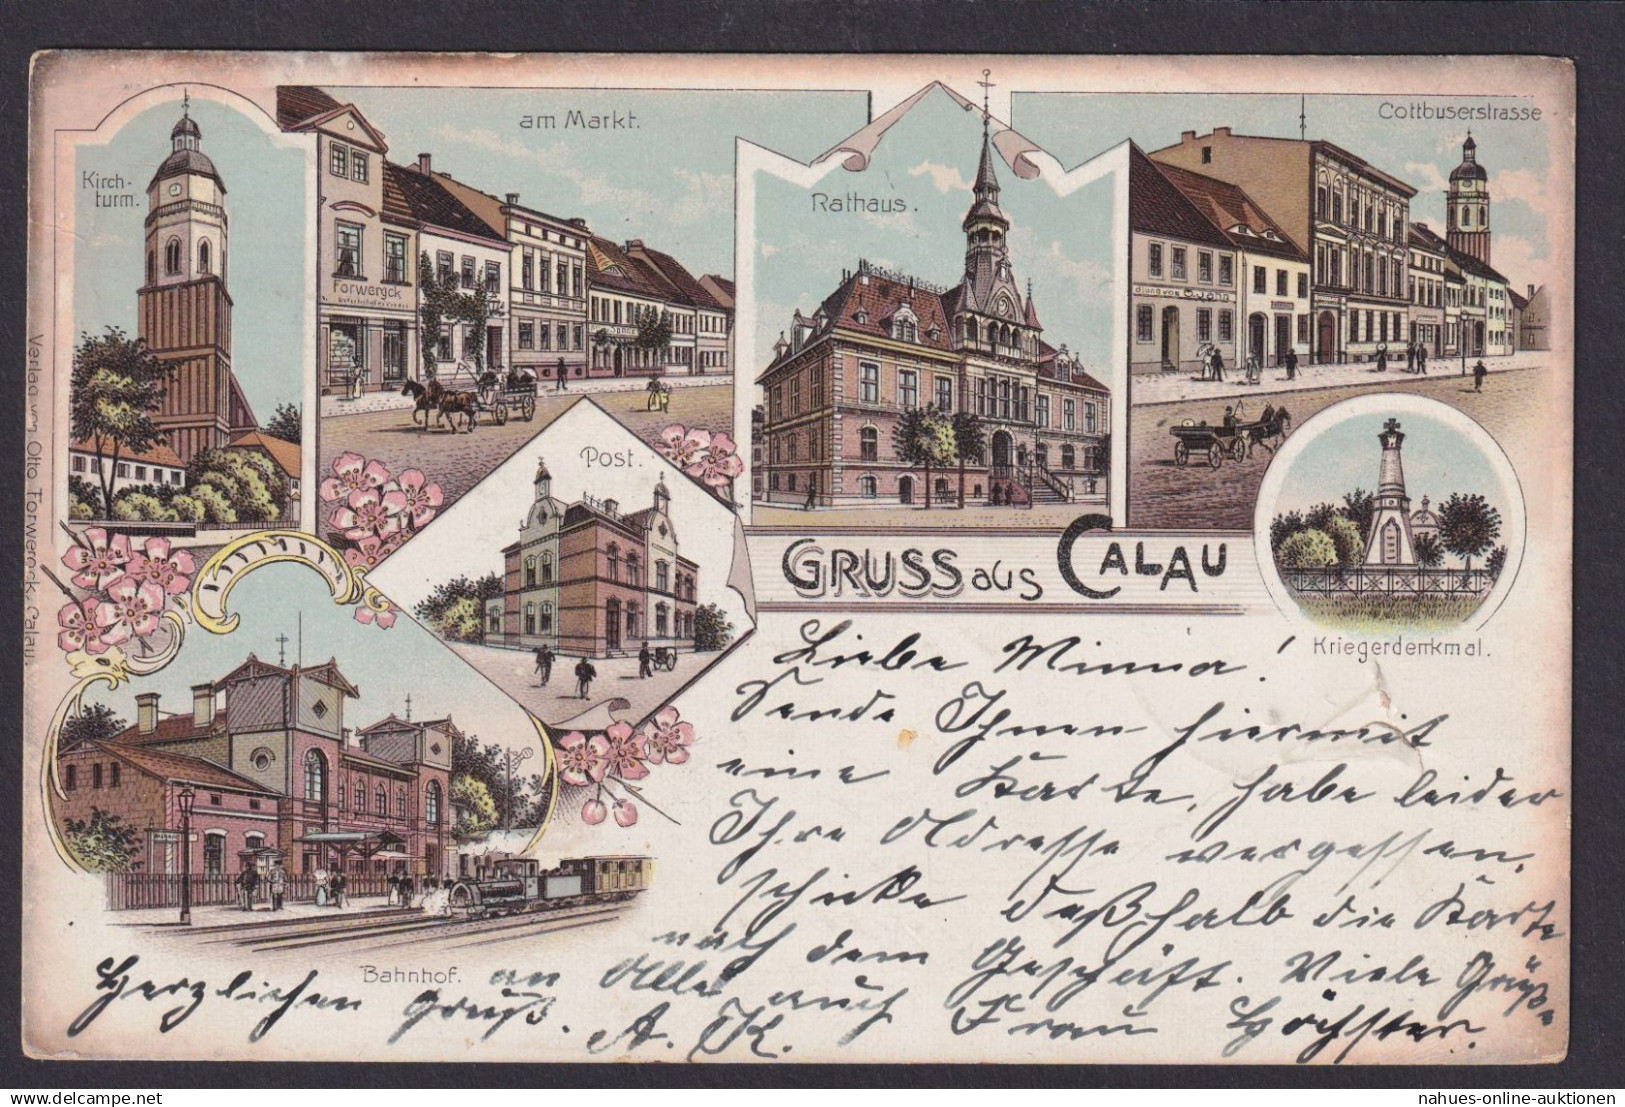 Kirch-
turm.
am Markt.
Rathaus.
Cottbuserstrasse
Forwergck
S. Jahn
Post.
GRUSS aus CALAU
Kriegerdenkmal.
Bahnhof.
Verlag von Otto Forwerck, Calau.
Liebe Minna!
Sende Ihnen hiermit
eine Karte, habe leider
Ihre Adresse vergessen,
schicke deßhalb die Karte
nach dem Geschäft. Viele Grüße
an Alle auch Frau Höchster.
Herzlichen Gruß. A. K.
nahues-online-auktionen